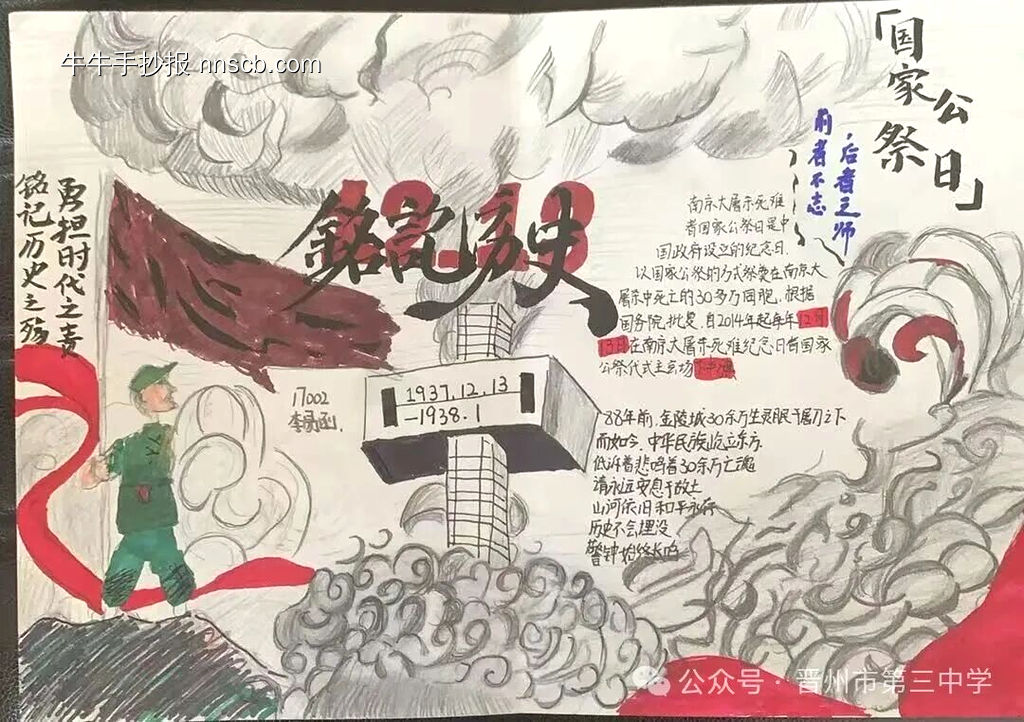 牛牛手抄报 nnscb.com
「国家公祭日」
前者不忘
后者之师
勇担时代之责
铭记历史之殇
12.13
銘記历史
南京大屠杀死难
者国家公祭日是中
国政府设立的纪念日,
以国家公祭的方式祭奠在南京大
屠杀中死亡的30多万同胞,根据
国务院批复,自2014年起每年12月
13日在南京大屠杀死难纪念日看国家
公祭仪式主会场
17002
1937.12.13
-1938.1
88年前,金陵城30余万生灵眠于屠刀之下
而如今,中华民族屹立东方
低诉着悲鸣着30余万亡魂
请永远安息于故土
山河依旧和平永存
历史不会埋没
警钟始终长鸣
公众号·晋州市第三中学